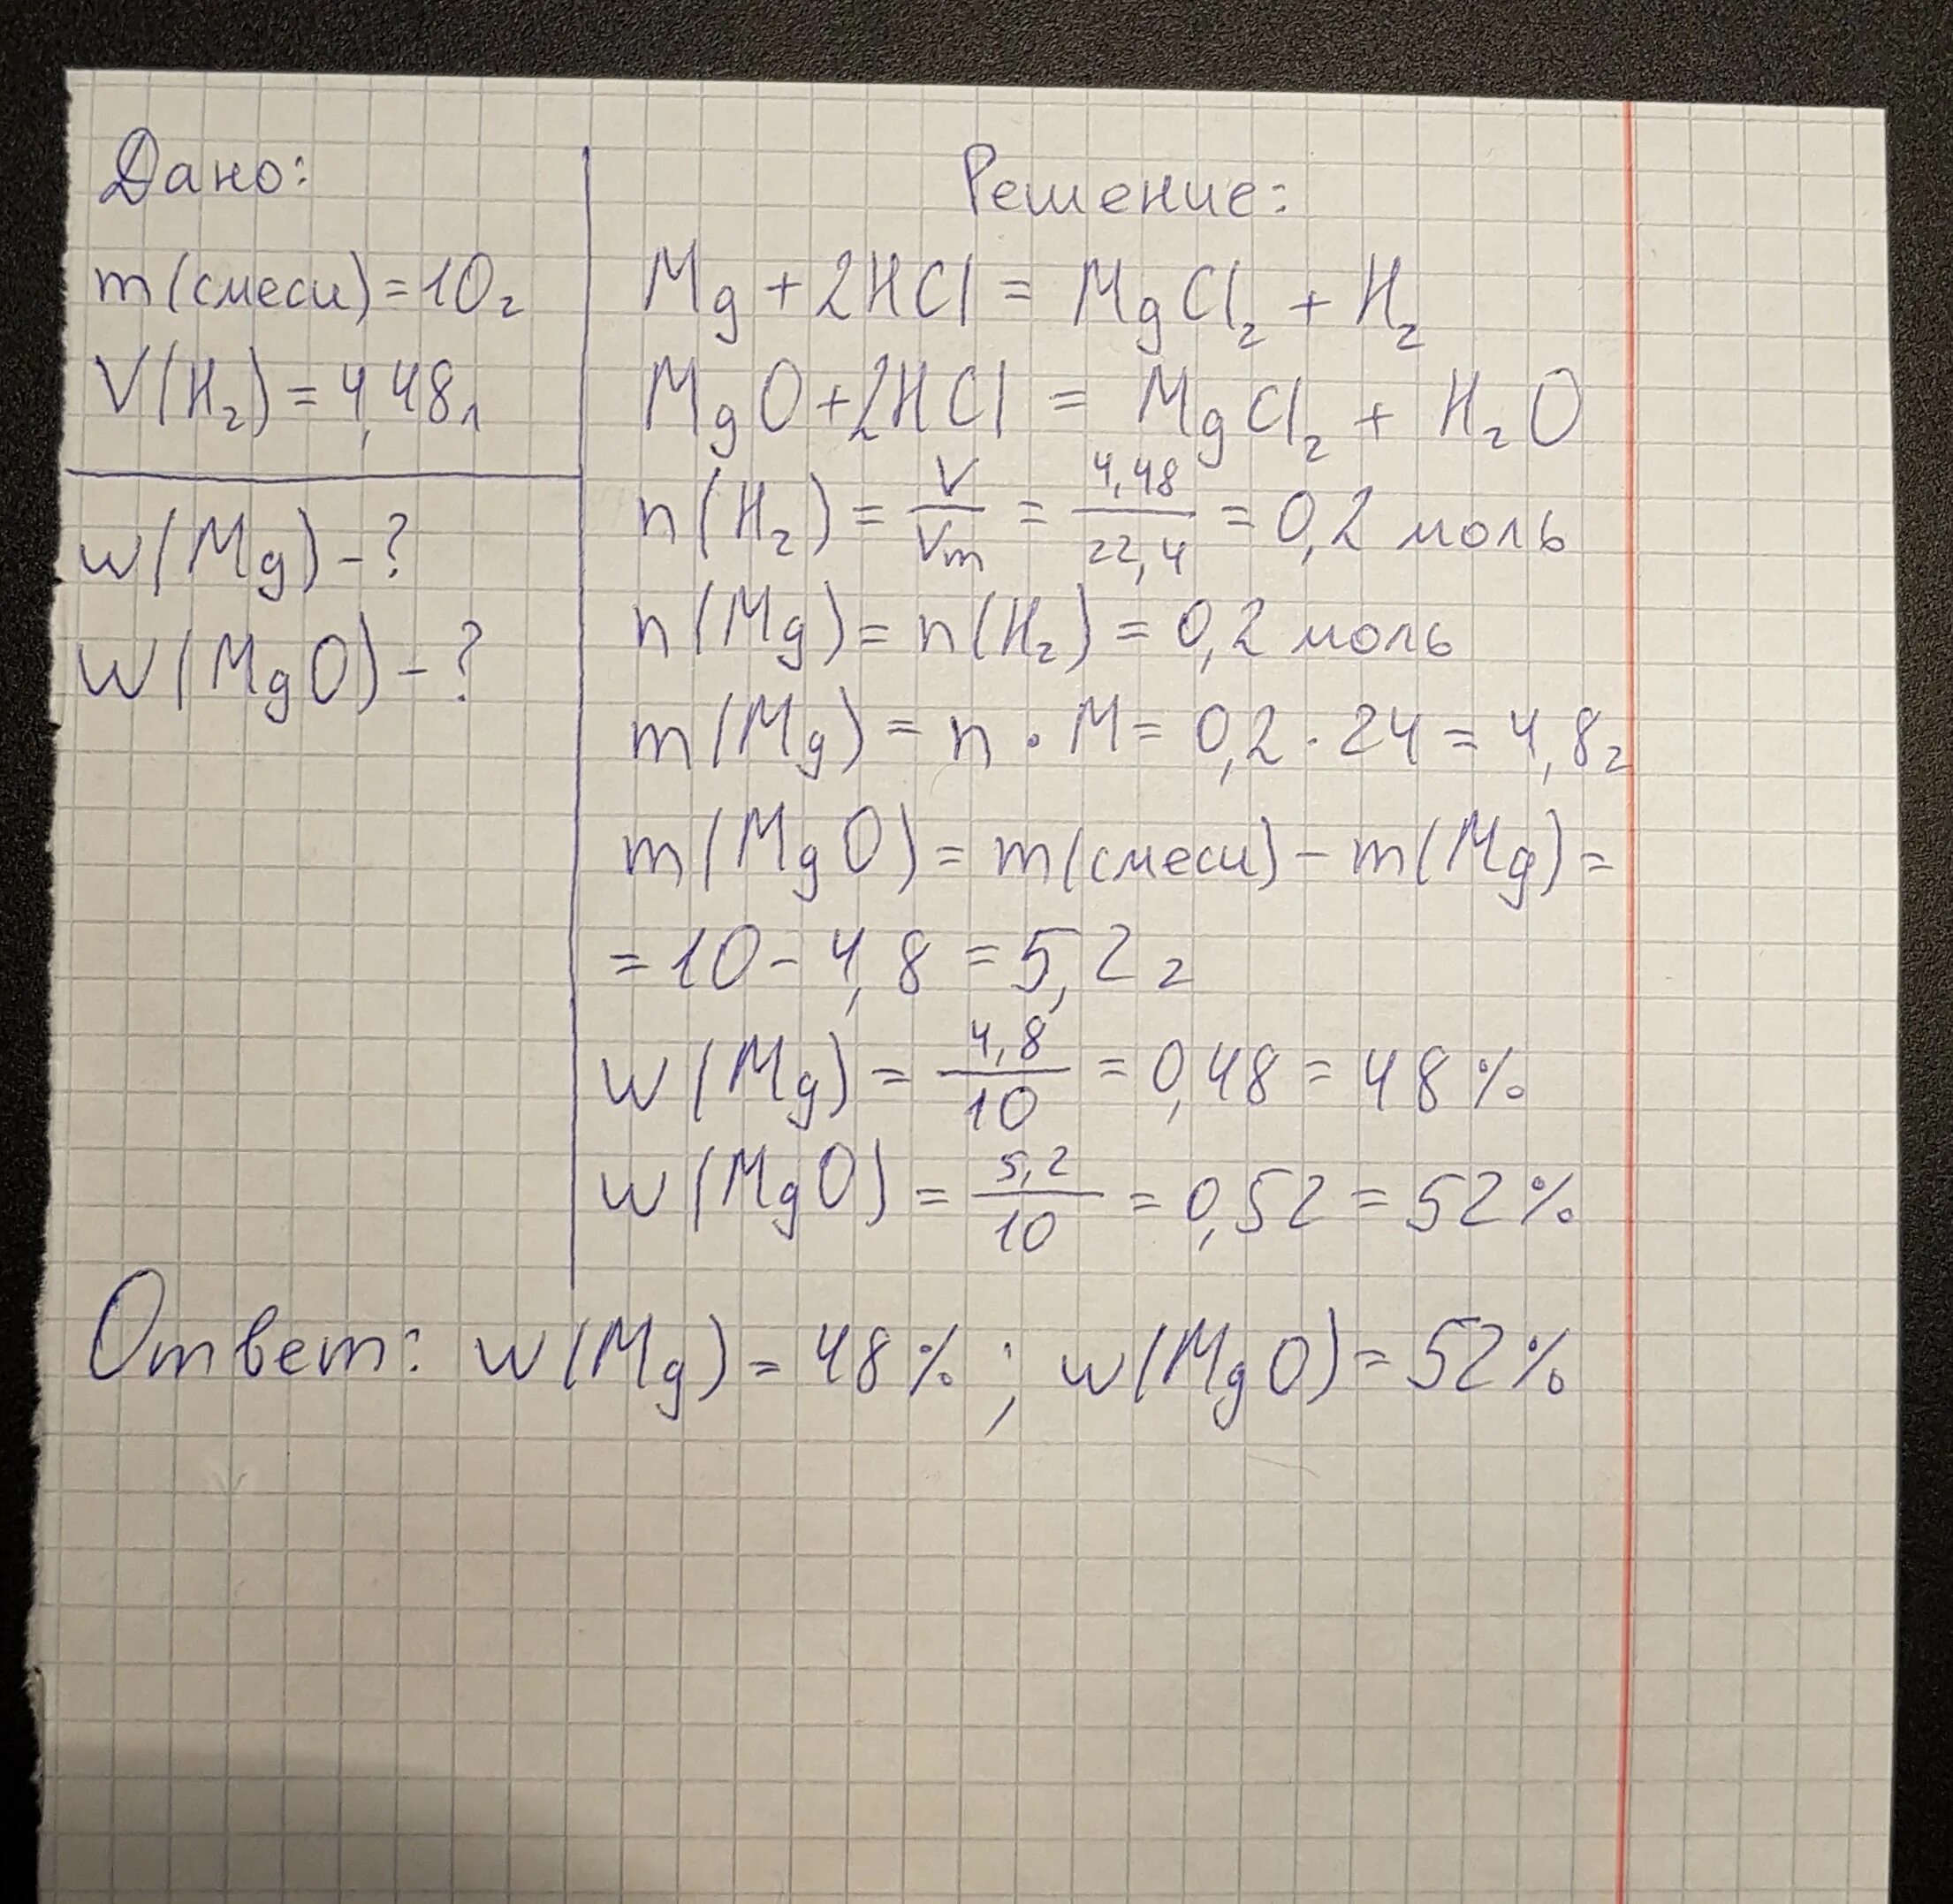 Дано:
m(смеси)=10г
V(H₂)=4,48л
w(Mg)-?
w(MgO)-?
Решение:
Mg+2HCl=MgCl₂+H₂
MgO+2HCl=MgCl₂+H₂O
n(H₂)=V/Vm=4,48/22,4=0,2 моль
n(Mg)=n(H₂)=0,2 моль
m(Mg)=n·M=0,2·24=4,8г
m(MgO)=m(смеси)-m(Mg)=
=10-4,8=5,2г
w(Mg)=4,8/10=0,48=48%
w(MgO)=5,2/10=0,52=52%
Ответ: w(Mg)=48%; w(MgO)=52%